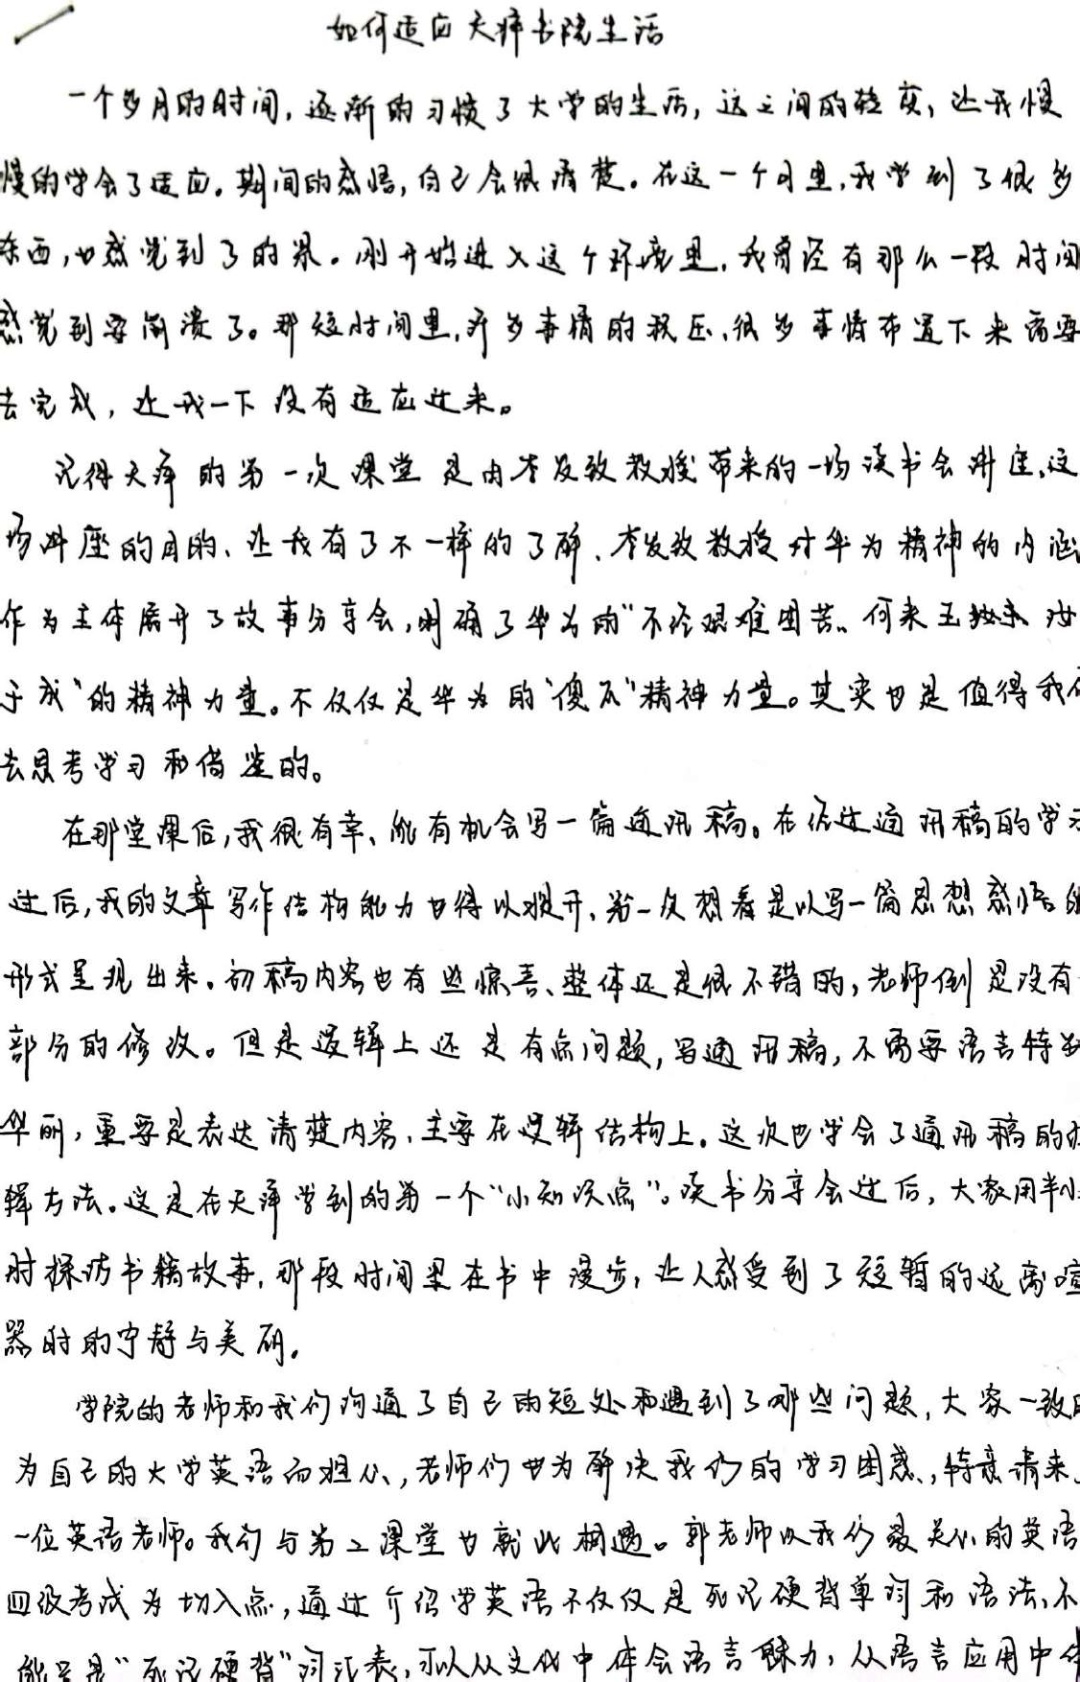 如何适应天泽书院生活
一个多月的时间，逐渐的习惯了大学的生活，这之间的转变，让我慢
慢的学会了适应。期间的感悟，自己会很清楚。在这一个月里，我学到了很多
东西，也感觉到了的累。刚开始进入这个环境里，我曾经有那么一段时间
感觉到要崩溃了。那短时间里，许多事情的积压，很多事情布置下来需要
去完成，让我一下没有适应过来。
记得天泽的第一次课堂是由李发致教授带来的一场读书会讲座，这
场讲座的目的、让我有了不一样的了解、李发致教授对华为精神的内涵
作为主体展开了故事分享会，明确了华为的"不经艰难困苦、何来玉 汝
于成"的精神力量。不仅仅是华为的"傻瓜"精神力量。其实也是值得我们
去思考学习和借鉴的。
在那堂课后，我很有幸、能有机会写一篇通讯稿。在 过通讯稿的学习
过后，我的文章写作结构能力也得以提升、第一次想着是以写一篇思想感悟的
形式呈现出来。初稿内容也有些惊喜、整体还是很不错的，老师倒是没有
部分的修改。但是逻辑上还是有点问题，写通讯稿，不需要语言特别
华丽，重要是表达清楚内容、主要在逻辑结构上。这次也学会了通讯稿的
辑方法。这是在天泽学到的第一个"小知识点"。读书分享会过后，大家用半小
时探访书籍故事，那段时间里在书中漫步，让人感受到了短暂的远离喧
嚣时的宁静与美丽。
学院的老师和我们沟通了自己的短处和遇到了哪些问题，大家一致
为自己的大学英语而担心、老师们也为解决我们的学习困惑、特意请来
一位英语老师。我们与第2课堂也就此相遇。郭老师以我们最关心的英语
四级考试为切入点，通过介绍学英语不仅仅是死记硬背单词和语法、不
能只是"死记硬背"词汇表，可以从文化中体会语言魅力，从语言应用中